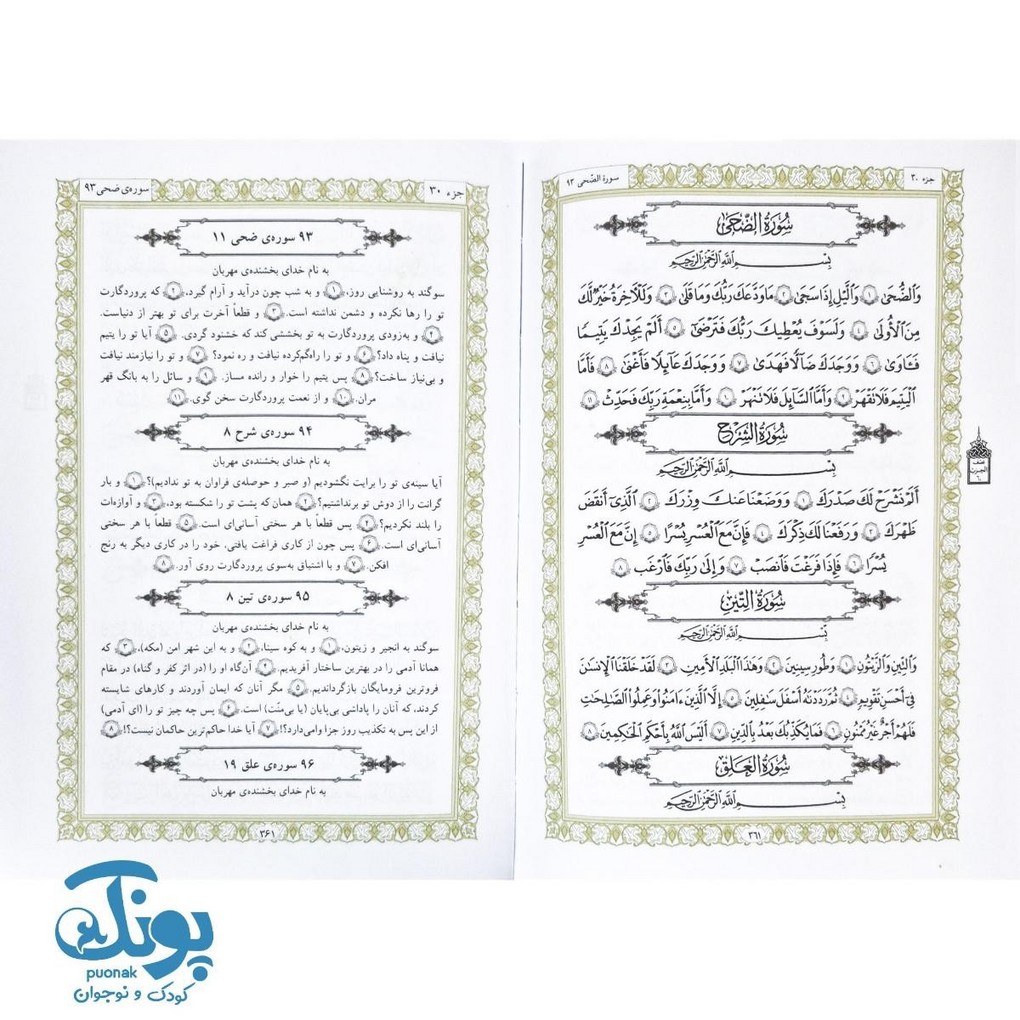 جزء ۳۰
سورة الضّحى ۹۳
سُورَةُ الضُّحَىٰ
بِسْمِ اللَّهِ الرَّحْمَٰنِ الرَّحِيمِ
وَالضُّحَىٰ ١ وَاللَّيْلِ إِذَا سَجَىٰ ٢ مَا وَدَّعَكَ رَبُّكَ وَمَا قَلَىٰ ٣ وَلَلْآخِرَةُ خَيْرٌ لَكَ
مِنَ الْأُولَىٰ ٤ وَلَسَوْفَ يُعْطِيكَ رَبُّكَ فَتَرْضَىٰ ٥ أَلَمْ يَجِدْكَ يَتِيمًا
فَـَٔاوَىٰ ٦ وَوَجَدَكَ ضَآلًّا فَهَدَىٰ ٧ وَوَجَدَكَ عَآئِلًا فَأَغْنَىٰ ٨ فَأَمَّا
الْيَتِيمَ فَلَا تَقْهَرْ ٩ وَأَمَّا السَّآئِلَ فَلَا تَنْهَرْ ١٠ وَأَمَّا بِنِعْمَةِ رَبِّكَ فَحَدِّثْ ١١
سُورَةُ الشَّرْحِ
بِسْمِ اللَّهِ الرَّحْمَٰنِ الرَّحِيمِ
أَلَمْ نَشْرَحْ لَكَ صَدْرَكَ ١ وَوَضَعْنَا عَنْكَ وِزْرَكَ ٢ الَّذِىٓ أَنْقَضَ
ظَهْرَكَ ٣ وَرَفَعْنَا لَكَ ذِكْرَكَ ٤ فَإِنَّ مَعَ الْعُسْرِ يُسْرًا ٥ إِنَّ مَعَ الْعُسْرِ
يُسْرًا ٦ فَإِذَا فَرَغْتَ فَانْصَبْ ٧ وَإِلَىٰ رَبِّكَ فَارْغَبْ ٨
سُورَةُ التِّينِ
بِسْمِ اللَّهِ الرَّحْمَٰنِ الرَّحِيمِ
وَالتِّينِ وَالزَّيْتُونِ ١ وَطُورِ سِينِينَ ٢ وَهَٰذَا الْبَلَدِ الْأَمِينِ ٣ لَقَدْ خَلَقْنَا الْإِنْسَٰنَ
فِىٓ أَحْسَنِ تَقْوِيمٍ ٤ ثُمَّ رَدَدْنَٰهُ أَسْفَلَ سَٰفِلِينَ ٥ إِلَّا الَّذِينَ ءَامَنُوا وَعَمِلُوا الصَّٰلِحَٰتِ
فَلَهُمْ أَجْرٌ غَيْرُ مَمْنُونٍ ٦ فَمَا يُكَذِّبُكَ بَعْدُ بِالدِّينِ ٧ أَلَيْسَ اللَّهُ بِأَحْكَمِ الْحَٰكِمِينَ ٨
سُورَةُ الْعَلَقِ
بِسْمِ اللَّهِ الرَّحْمَٰنِ الرَّحِيمِ
۳۶۱
جزء ۳۰
سوره‌ی ضحی ۹۳
۹۳ سوره‌ی ضحی ۱۱
به نام خدای بخشنده‌ی مهربان
سوگند به روشنایی روز، ۱ و به شب چون درآید و آرام گیرد، ۲ که پروردگارت
تو را رها نکرده و دشمن نداشته است. ۳ و قطعاً آخرت برای تو بهتر از دنیاست.
۴ و به‌زودی پروردگارت به تو بخششی کند که خشنود گردی. ۵ آیا تو را یتیم
نیافت و پناه داد؟ ۶ و تو را راه‌گم‌کرده نیافت و ره نمود؟ ۷ و تو را نیازمند نیافت
و بی‌نیاز ساخت؟ ۸ پس یتیم را خوار و رانده مساز. ۹ و سائل را به بانگ قهر
مران. ۱۰ و از نعمت پروردگارت سخن گوی. ۱۱
۹۴ سوره‌ی شرح ۸
به نام خدای بخشنده‌ی مهربان
آیا سینه‌ی تو را برایت نگشودیم (و صبر و حوصله‌ی فراوان به تو ندادیم)؟ ۱ و بار
گرانت را از دوش تو برنداشتیم؟ ۲ همان که پشت تو را شکسته بود، ۳ و آوازه‌ات
را بلند نکردیم؟ ۴ پس قطعاً با هر سختی آسانی‌ای است. ۵ قطعاً با هر سختی
آسانی‌ای است. ۶ پس چون از کاری فراغت یافتی، خود را در کاری دیگر به رنج
افکن. ۷ و با اشتیاق به‌سوی پروردگارت روی آور. ۸
۹۵ سوره‌ی تین ۸
به نام خدای بخشنده‌ی مهربان
سوگند به انجیر و زیتون، ۱ و به کوه سینا، ۲ و به این شهر امن (مکه)، ۳ که
همانا آدمی را در بهترین ساختار آفریدیم. ۴ آن‌گاه او را (در اثر کفر و گناه) در مقام
فروترین فرومایگان بازگرداندیم. ۵ مگر آنان که ایمان آوردند و کارهای شایسته
کردند، که آنان را پاداشی بی‌پایان (یا بی‌منّت) است. ۶ پس چه چیز تو را (ای آدمی)
از این پس به تکذیب روز جزا وامی‌دارد؟! ۷ آیا خدا حاکم‌ترین حاکمان نیست؟! ۸
۹۶ سوره‌ی علق ۱۹
به نام خدای بخشنده‌ی مهربان
۳۶۱
پونک
puonak
کودک و نوجوان